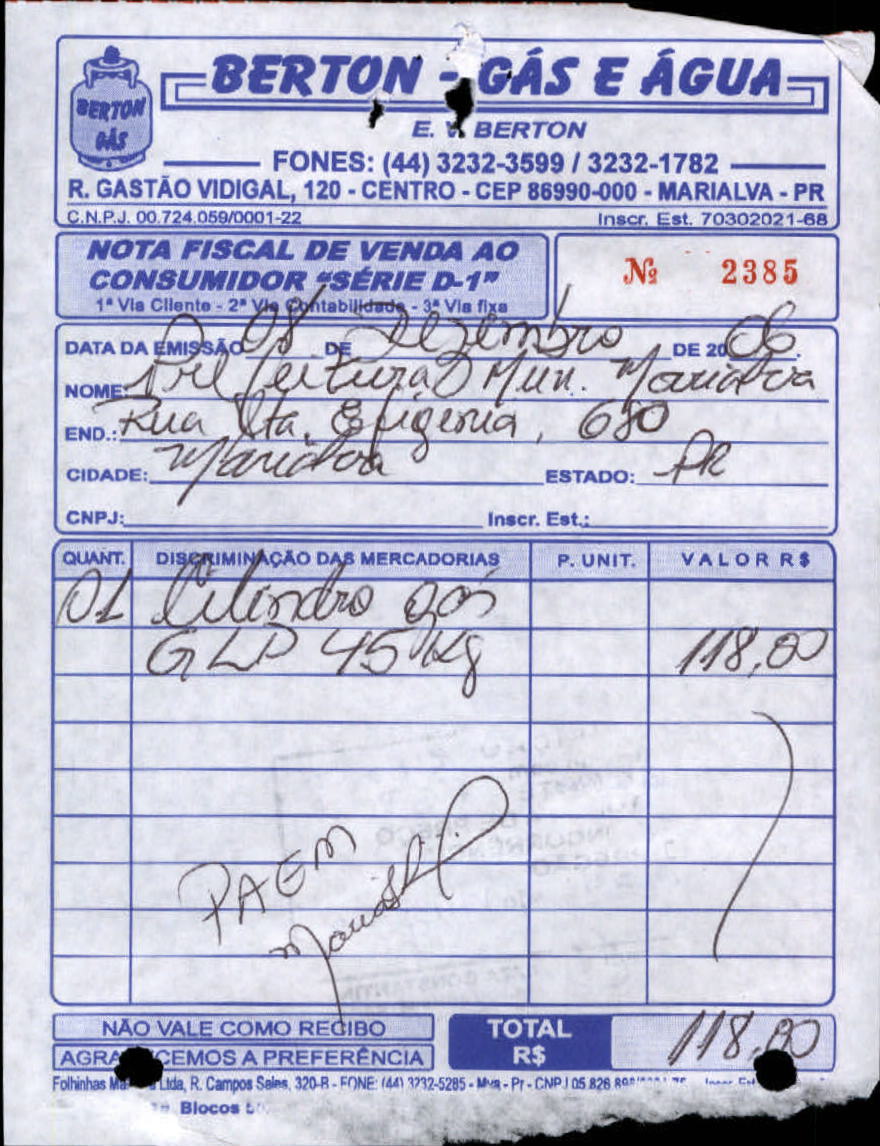 BERTON - GÁS E ÁGUA
BERTON
GÁS
E. BERTON
FONES: (44) 3232-3599 / 3232-1782
R. GASTÃO VIDIGAL, 120 - CENTRO - CEP 86990-000 - MARIALVA - PR
C.N.P.J. 00.724.059/0001-22 Inscr. Est. 70302021-68
NOTA FISCAL DE VENDA AO
CONSUMIDOR "SÉRIE D-1"
1ª Via Cliente - 2ª Via Contabilidade - 3ª Via fixa
Nº 2385
DATA DA EMISSÃO 08 DE Dezembro DE 2006.
NOME: Prefeitura Mun. Marialva
END.: Rua Sta. Efigenia, 680
CIDADE: Marialva ESTADO: PR
CNPJ: Inscr. Est.:
QUANT. DISCRIMINAÇÃO DAS MERCADORIAS P. UNIT. VALOR R$
01 Cilindro gás
GLP 45 Kg 118,00
PAEM
NÃO VALE COMO RECIBO
AGRA CEMOS A PREFERÊNCIA
TOTAL
R$ 118,00
Folhinhas Ltda, R. Campos Sales, 320-B - FONE: (44) 3232-5285 - Mva - Pr - CNPJ 05.826
Blocos